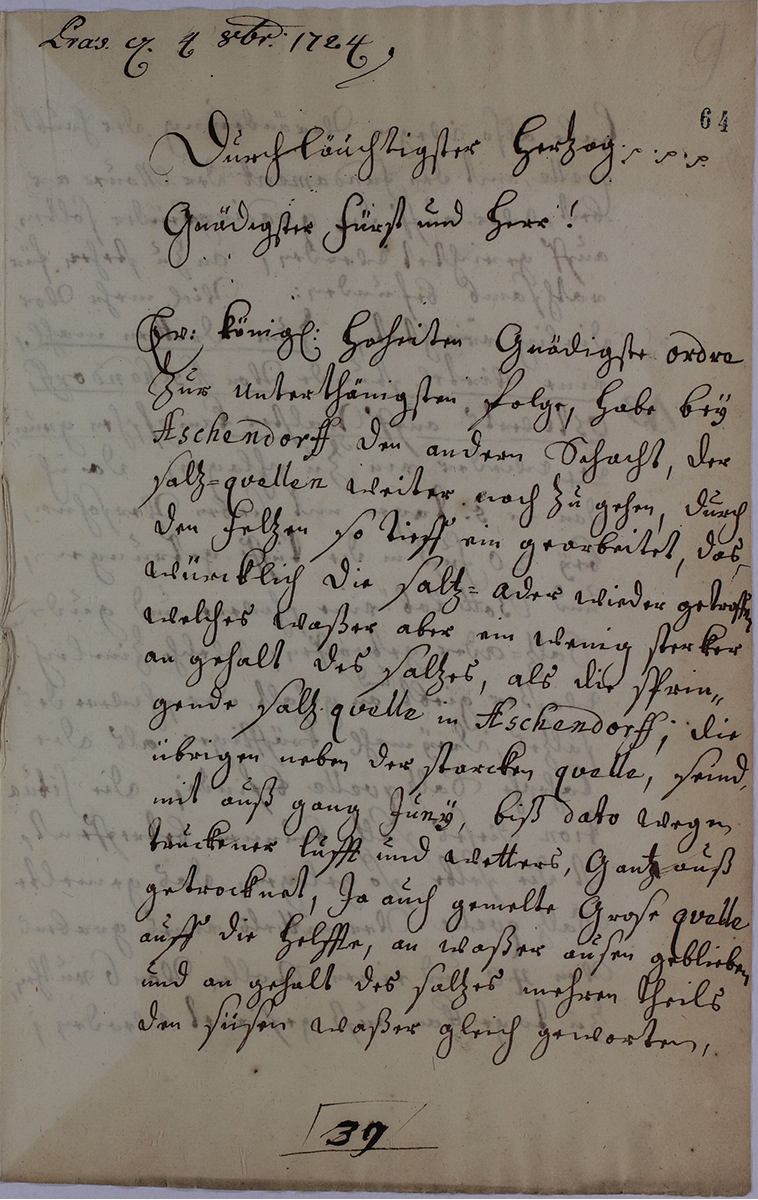 Præs. d. 4 8br: 1724,
64
Durchläuchtigster Hertzog. p. p. p.
Gnädigster Fürst und Herr!
Ew: Königl: Hoheiten Gnädigste ordre
Zur Unterthänigsten folge, habe beÿ
Aschendorff den andern Schacht, der
saltz=qvellen weiter nach zu gehen, durch
den feltzen so tieff ein gearbeitet, das,
würcklich die saltz=ader wieder getroffen
welches waßer aber ein wenig sterker
an gehalt des saltzes, als die sprin„
gende saltz qvelle in Aschendorff, die
übrigen neben der starcken qvelle, seind,
mit auß gang Junÿ, biß dato wegen
truckener lufft und wetters, Gantz auß
getrocknet, Ja auch gemelte Grose qvelle
auff die helffte, an waßer ausen geblieben
und an gehalt des saltzes mehren theils
den süsen waßer gleich geworten,
39